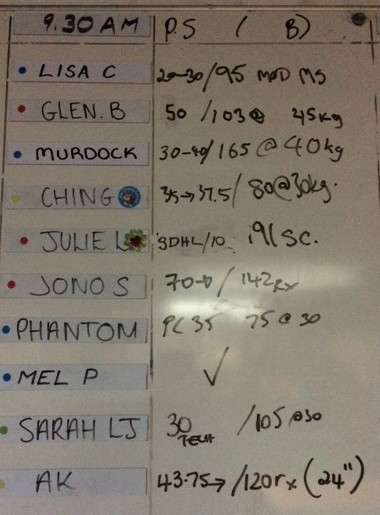 9.30 AM P.S ( B)
LISA C 20-30/95 MOD MS
GLEN.B 50 /103@ 45kg
MURDOCK 30-40/165 @ 40kg
CHING 35→37.5/ 80@30kg.
JULIE L 3DHL/10 91 SC.
JONO S 70-0 / 142 Rx
PHANTOM PC 35 75 @ 30
MEL P ✓
SARAH LJ 30 TECH /105 @30
AK 43.75→/120rx (24")